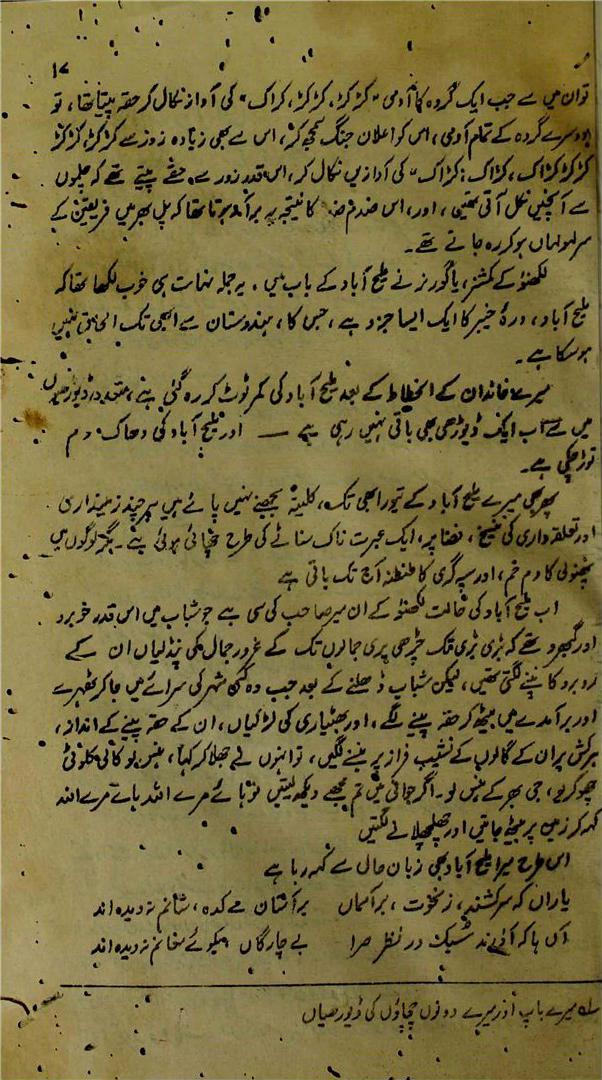 ۱۷
تو ان میں سے جب ایک گروہ کا آدمی "کڑ کڑ، کڑ کڑ، کڑاک" کی آواز نکال کر حقہ پیتا تھا، تو
دوسرے گروہ کے تمام آدمی، اس کو اعلان جنگ سمجھ کر، اس سے بھی زیادہ زور سے کڑ کڑ، کڑ کڑ
کڑ کڑ کڑاک، کڑاک، کڑاک" کی آوازیں نکال کر، اس قدر زور سے حقے پیتے تھے کہ چلموں
سے آنچیں نکل آتی تھیں، اور، اس کا نتیجہ یہ برآمد ہوتا تھا کہ پل بھر میں فریقین کے
سر لہولہاں ہو کر رہ جاتے تھے۔
لکھنؤ کے کمشنر، یا گورنر نے ملیح آباد کے باب میں، یہ جملہ نہایت ہی خوب لکھا تھا کہ
ملیح آباد، درۂ خیبر کا ایک ایسا جزو ہے، جس کا، ہندوستان سے ابھی تک الحاق نہیں
ہو سکا ہے۔
میرے خاندان کے انحطاط کے بعد ملیح آباد کی کمر ٹوٹ کر رہ گئی ہے، متعدد ڈیوڑھیوں
میں سے اب ایک ڈیوڑھی بھی باقی نہیں رہی ہے — اور ملیح آباد کی دھاک دم
توڑ چکی ہے۔
پھر بھی میرے ملیح آباد کے تیور ابھی تک، کلیتہً بجھنے نہیں پائے ہیں ہر چند زمینداری
اور تعلقہ داری کی تنسیخ، فضا پر، ایک عبرت ناک سناٹے کی طرح چھائی ہوئی ہے۔ مگر لوگوں میں
کا دم خم، اور سپہ گری کا طنطنہ آج تک باقی ہے
اب ملیح آباد کی حالت لکھنؤ کے ان میر صاحب کی سی ہے جو شباب میں اس قدر خوبرو
اور گبھرو تھے کہ بڑی بڑی تک چڑھی پری جمالوں تک کے غرور جمال کی پنڈلیاں ان کے
رو برو کانپنے لگتی تھیں، لیکن شباب ڈھلنے کے بعد جب وہ کسی شہر کی سرائے میں جا کر ٹھہرے
اور برآمدے میں بیٹھ کر حقہ پینے لگے، اور بھٹیاری کی لڑکیاں، ان کے حقہ پینے کے انداز،
ہر کش پر ان کے گالوں کے نشیب فراز پر ہنسنے لگیں، تو انہوں نے جھلا کر کہا، ہنس لو کانی کلوٹی
چھوکریو، جی بھر کے ہنس لو۔ اگر جوانی میں تم مجھے دیکھ لیتیں تو ہائے مرے اللہ ہائے مرے اللہ
کہہ کر زمین پر بیٹھ جاتیں اور چھلچھلانے لگتیں
اس طرح میرا ملیح آباد بھی زبان حال سے کہہ رہا ہے
یاراں کہ سرکشند، ز نخوت، بر آسماں بر آستان مے کدہ، شانم نہ دیدہ اند
آں ہا کہ آئدند سبک در نظر مرا بے چارگاں نہ دیدہ اند
۱؎ میرے باپ اور میرے دونوں چچاؤں کی ڈیوڑھیاں